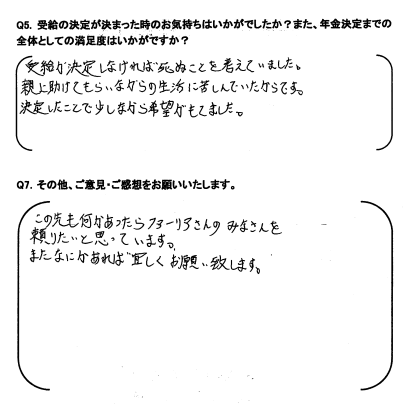 Q5. 受給の決定が決まった時のお気持ちはいかがでしたか？また、年金決定までの
全体としての満足度はいかがですか？
受給が決定しなければ死ぬことを考えていました。
親に助けてもらいながらの生活に苦しんでいたからです。
決定したことで少しながら希望がもてました。
Q7. その他、ご意見・ご感想をお願いいたします。
この先も何かあったらフォーリアさんのみなさんを
頼りたいと思っています。
またなにかあれば宜しくお願い致します。